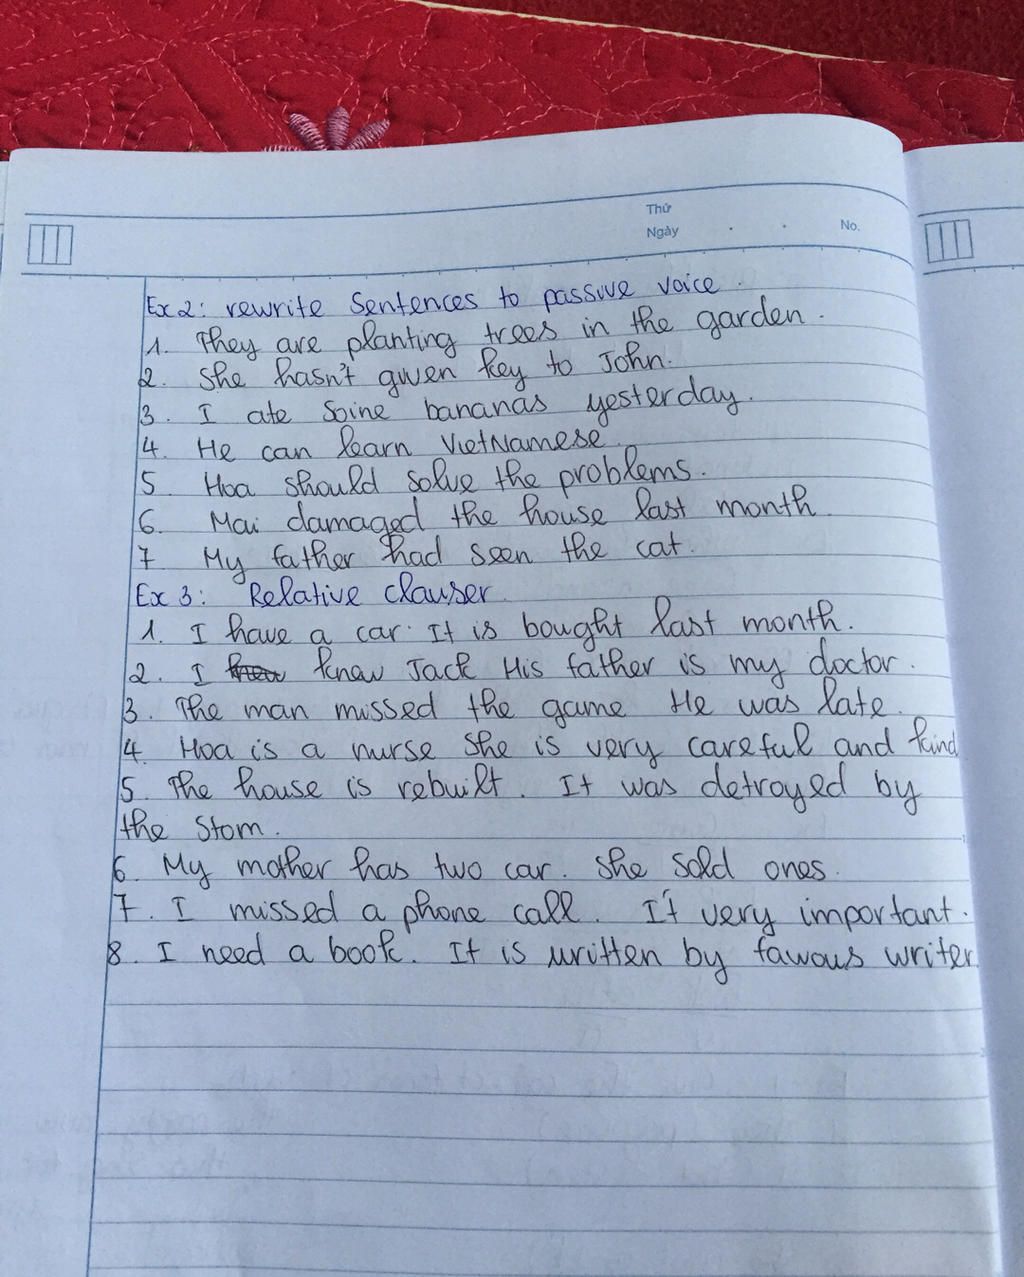 Thứ
Ngày
No.
Ex 2: rewrite sentences to passive voice.
1. They are planting trees in the garden.
2. She hasn't given key to John.
3. I ate some bananas yesterday.
4. He can learn VietNamese.
5 Hoa should solve the problems.
6. Mai damaged the house last month
7 My father had seen the cat.
Ex 3: Relative clauser.
1. I have a car. It is bought last month.
2. I knew Jack His father is my doctor.
3. The man missed the game He was late.
4. Hoa is a nurse She is very careful and kind
5. The house is rebuilt. It was detroyed by
the stom.
6. My mother has two car. She sold ones.
7. I missed a phone call. It very important.
8. I need a book. It is written by famous writer